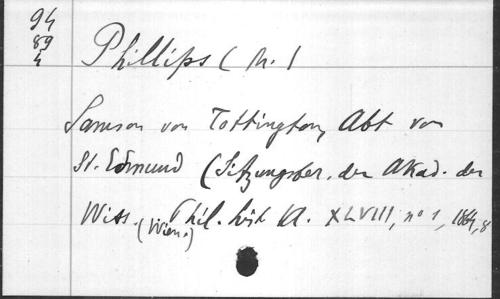 94
89
4
Phillips ( M. )
Samson von Tottington, Abt von
St. Edmund (Sitzungsber. der Akad. der
Wiss. (Wien.) Phil. hist Kl. XLVIII, no 1, 1864, 8